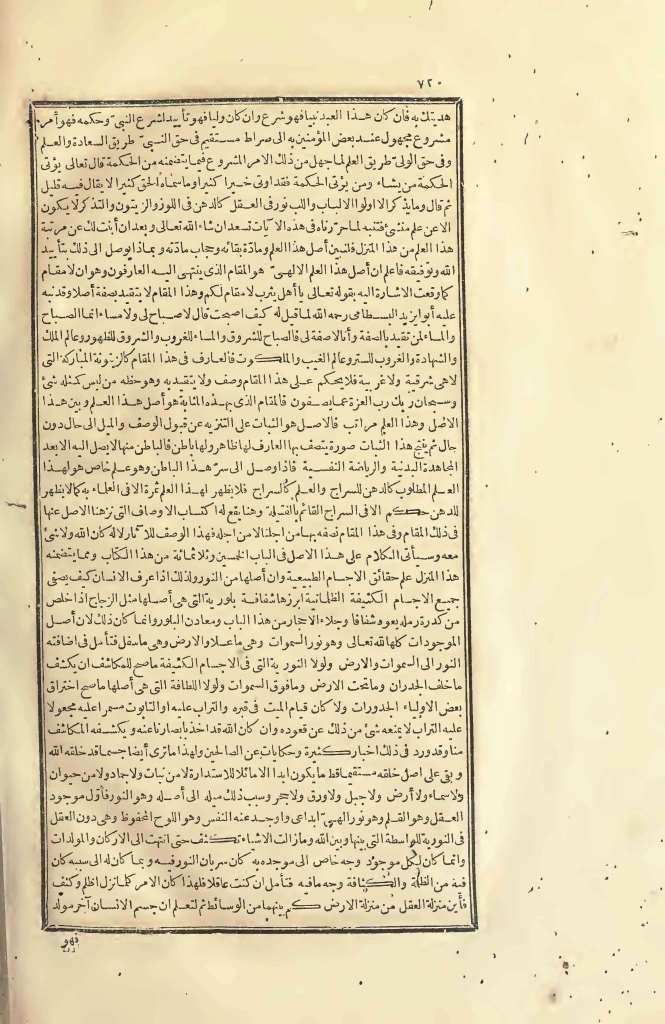 ٧٢٠
هديتك به فان كان هذا العبد نبيا فهو شرع وان كان وليا فهو تأييد لشرع النبي وحكمه فهو أمر
مشروع مجهول عند بعض المؤمنين به الى صراط مستقيم فى حق النبي طريق السعادة والعلم
وفى حق الولى طريق العلم لما جهل من ذلك الامر المشروع فيما يتضمنه من الحكمة قال تعالى يؤتى
الحكمة من يشاء ومن يؤتى الحكمة فقد اوتى خيرا كثيرا وما سماه الحق كثيرا لا يقال فيه قليل
ثم قال وما يذكر الا اولوا الالباب واللب نور فى العقل كالدهن فى اللوز والزيتون والتذكر لا يكون
الا عن علم منسى فتنبه لما حررناه فى هذه الآيات تسعد ان شاء الله تعالى وبعد ان أبنت لك عن مرتبة
هذا العلم من هذا المنزل فلنبين أصل هذا العلم ومادة بقائه وحجاب مادته وبماذا يوصل الى ذلك بتأييد
الله وتوفيقه فاعلم ان أصل هذا العلم الالهى هو المقام الذى ينتهى اليه العارفون وهو ان لا مقام
كما وقعت الاشارة اليه بقوله تعالى يا أهل يثرب لا مقام لكم وهذا المقام لا يتقيد بصفة أصلا وقد نبه
عليه أبو يزيد البسطامى رحمه الله لما قيل له كيف اصبحت قال لا صباح لى ولا مساء انما الصباح
والمساء لمن تقيد بالصفة وأنا لا صفة لى فالصباح للشروق والمساء للغروب والشروق للظهور وعالم الملك
والشهادة والغروب للستر وعالم الغيب والملكوت فالعارف فى هذا المقام كالزيتونة المباركة التى
لاهى شرقية ولا غربية فلا يحكم على هذا المقام وصف ولا يتقيد به وهو حظه من ليس كمثله شئ
وسبحان ربك رب العزة عما يصفون فالمقام الذى بهذه المثابة هو أصل هذا العلم وبين هذا
الاصل وهذا العلم مراتب فالاصل هو الثبات على التنزيه عن قبول الوصف والميل الى حال دون
حال ثم ينتج هذا الثبات صورة يتصف بها العارف لها ظاهر ولها باطن فالباطن منها لا يصل اليه الا بعد
المجاهدة البدنية والرياضة النفسية فاذا وصل الى سر هذا الباطن وهو علم خاص هو لهذا
العلم المطلوب كالدهن للسراج والعلم كالسراج فلا يظهر لهذا العلم ثمرة الا فى العلماء به كما لا يظهر
للدهن حكم الا فى السراج القائم بالفتيلة وهنا يقع له اكتساب الاوصاف التى نزهنا الاصل عنها
فى ذلك المقام وفى هذا المقام نصفه بها من اجلنا لا من اجله فهذا الوصف للآثار لا له كان الله ولا شئ
معه وسيأتى الكلام على هذا الاصل فى الباب الخمسين وثلاثمائة من هذا الكتاب ومما يتضمنه
هذا المنزل علم حقائق الاجسام الطبيعية وان أصلها من النور ولذلك اذا عرف الانسان كيف يصفى
جميع الاجسام الكثيفة الظلمانية ابرزها شفافة بلورية التى هى أصلها مثل الزجاج اذا خلص
من كدرة رمله يعود شفافا وجلاء الاحجار من هذا الباب ومعادن البلور وانما كان ذلك لان أصل
الموجودات كلها الله تعالى وهو نور السموات وهى ما علا والارض وهى ما سفل فتأمل فى اضافته
النور الى السموات والارض ولولا النورية التى فى الاجسام الكثيفة ما صح للمكاشف ان يكشف
ما خلف الجدران وما تحت الارض وما فوق السموات ولولا اللطافة التى هى أصلها ما صح اختراق
بعض الاولياء الجدورات ولا كان قيام الميت فى قبره والتراب عليه او التابوت مسمر اعليه مجعولا
عليه التراب لا يمنعه شئ من ذلك عن قعوده وان كان الله قد اخذ بابصارنا عنه ويكشفه المكاشف
منا وقد ورد فى ذلك اخبار كثيرة وحكايات عن الصالحين ولهذا ما ترى أيضا جسما قد خلقه الله
وبقى على اصل خلقه مستقيما قط ما يكون ابدا الا مائلا للاستدارة لا من نبات ولا جماد ولا من حيوان
ولا سماء ولا أرض ولا جبل ولا ورق ولا حجر وسبب ذلك ميله الى أصله وهو النور فأول موجود
العقل وهو القلم وهو نور الهى ابداعى واوجد عنه النفس وهو اللوح المحفوظ وهى دون العقل
فى النورية للواسطة التى بينها وبين الله وما زالت الاشياء تكثف حتى انتهت الى الاركان والمولدات
وانما كان لكل موجود وجه خاص الى موجده به كان سريان النور فيه وبما كان له الى سببه كان
فيه من الظلمة والكثافة وجه ما فيه فتأمل ان كنت عاقلا فلهذا كان الامر كلما نزل اظلم وكثف
فأين منزلة العقل من منزلة الارض كم بينهما من الوسائط ثم لتعلم ان جسم الانسان آخر مولد
فهو